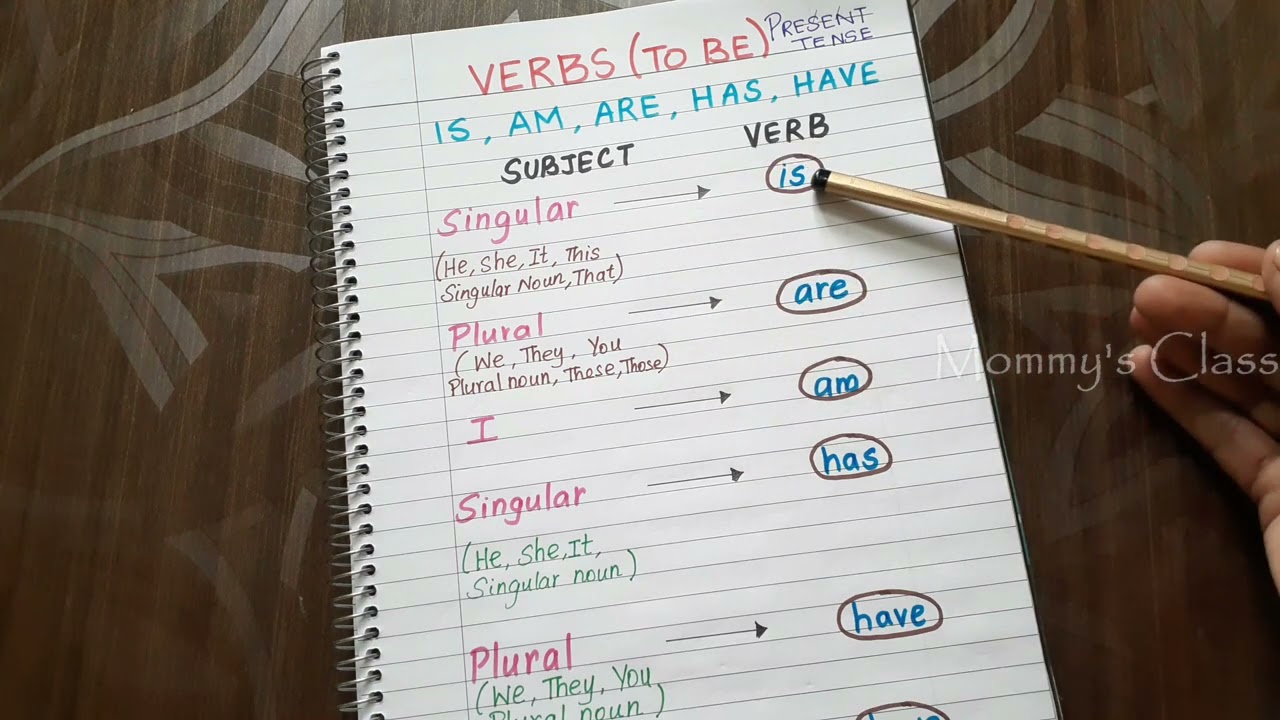 VERBS (TO BE) PRESENT TENSE
IS, AM, ARE, HAS, HAVE
SUBJECT VERB
Singular → is
(He, She, It, This
Singular Noun, That)
Plural → are
(We, They, You
Plural noun, These, Those)
I → am
Singular → has
(He, She, It,
Singular noun)
Plural → have
(We, They, You,
Plural noun)
Mommy's Class